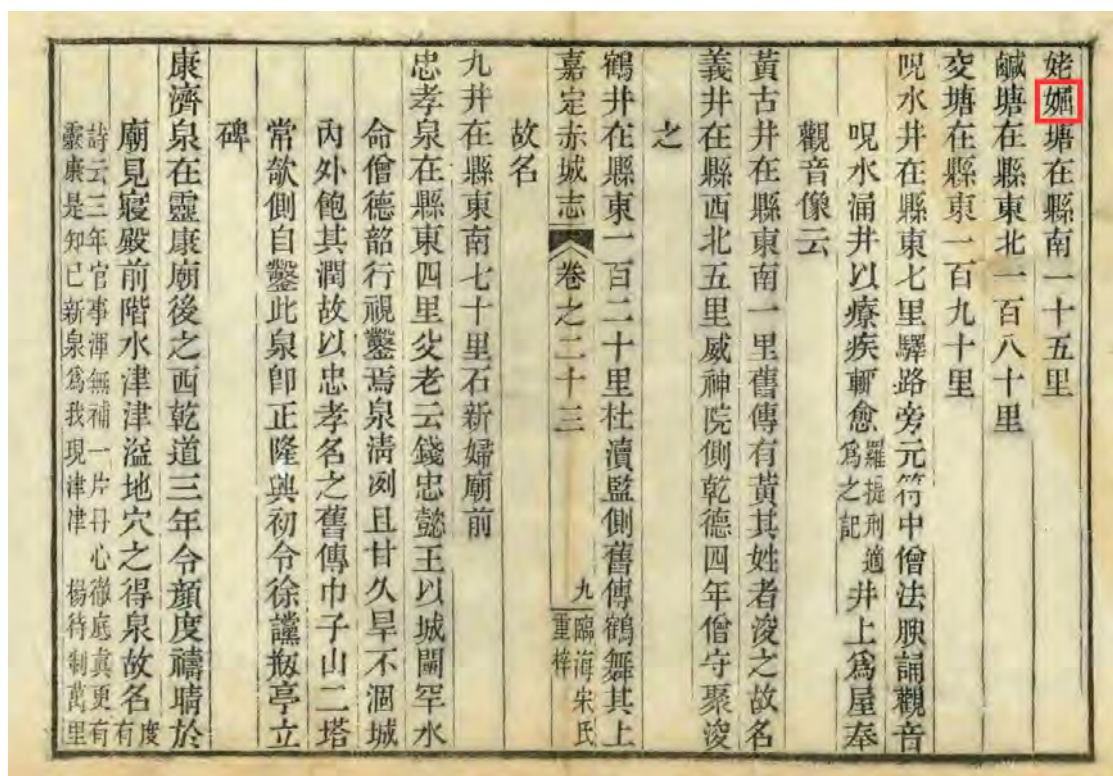 姥塘在縣南一十五里
鹹塘在縣東北一百八十里
交塘在縣東一百九十里
呪水井在縣東七里驛路旁元符中僧法腴誦觀音
呪水涌井以療疾輒愈羅提刑適爲之記井上爲屋奉
觀音像云
黃古井在縣東南一里舊傳有黃其姓者浚之故名
義井在縣西北五里威神院側乾德四年僧守聚浚
之
鶴井在縣東一百二十里杜瀆監側舊傳鶴舞其上
嘉定赤城志 卷之二十三 九 臨海宋氏重梓
故名
九井在縣東南七十里石新婦廟前
忠孝泉在縣東四里父老云錢忠懿王以城闉罕水
命僧德韶行視鑿焉泉淸冽且甘久旱不涸城
內外飽其潤故以忠孝名之舊傳巾子山二塔
常欹側自鑿此泉卽正隆興初令徐讜亭立
碑
康濟泉在靈康廟後之西乾道三年令顏度禱晴於
廟見寢殿前階水津津溢地穴之得泉故名度有
詩云三年官事渾無補一片丹心徹底真更有
靈康是知已新泉爲我現津津 楊待制萬里有